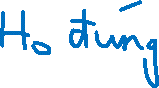 Ho đúng